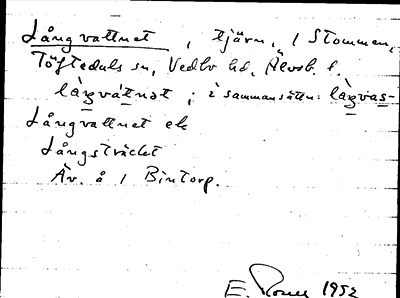 Långvattnet, tjärn, / Stommen,
Töftedals sn, Vedbo hd, Älvsb. l.
lågvàtnət ; i sammansättn: lågvas-
Långvattnet ek
Långsträcket
Äv. å / Bintorp.
E. 1952